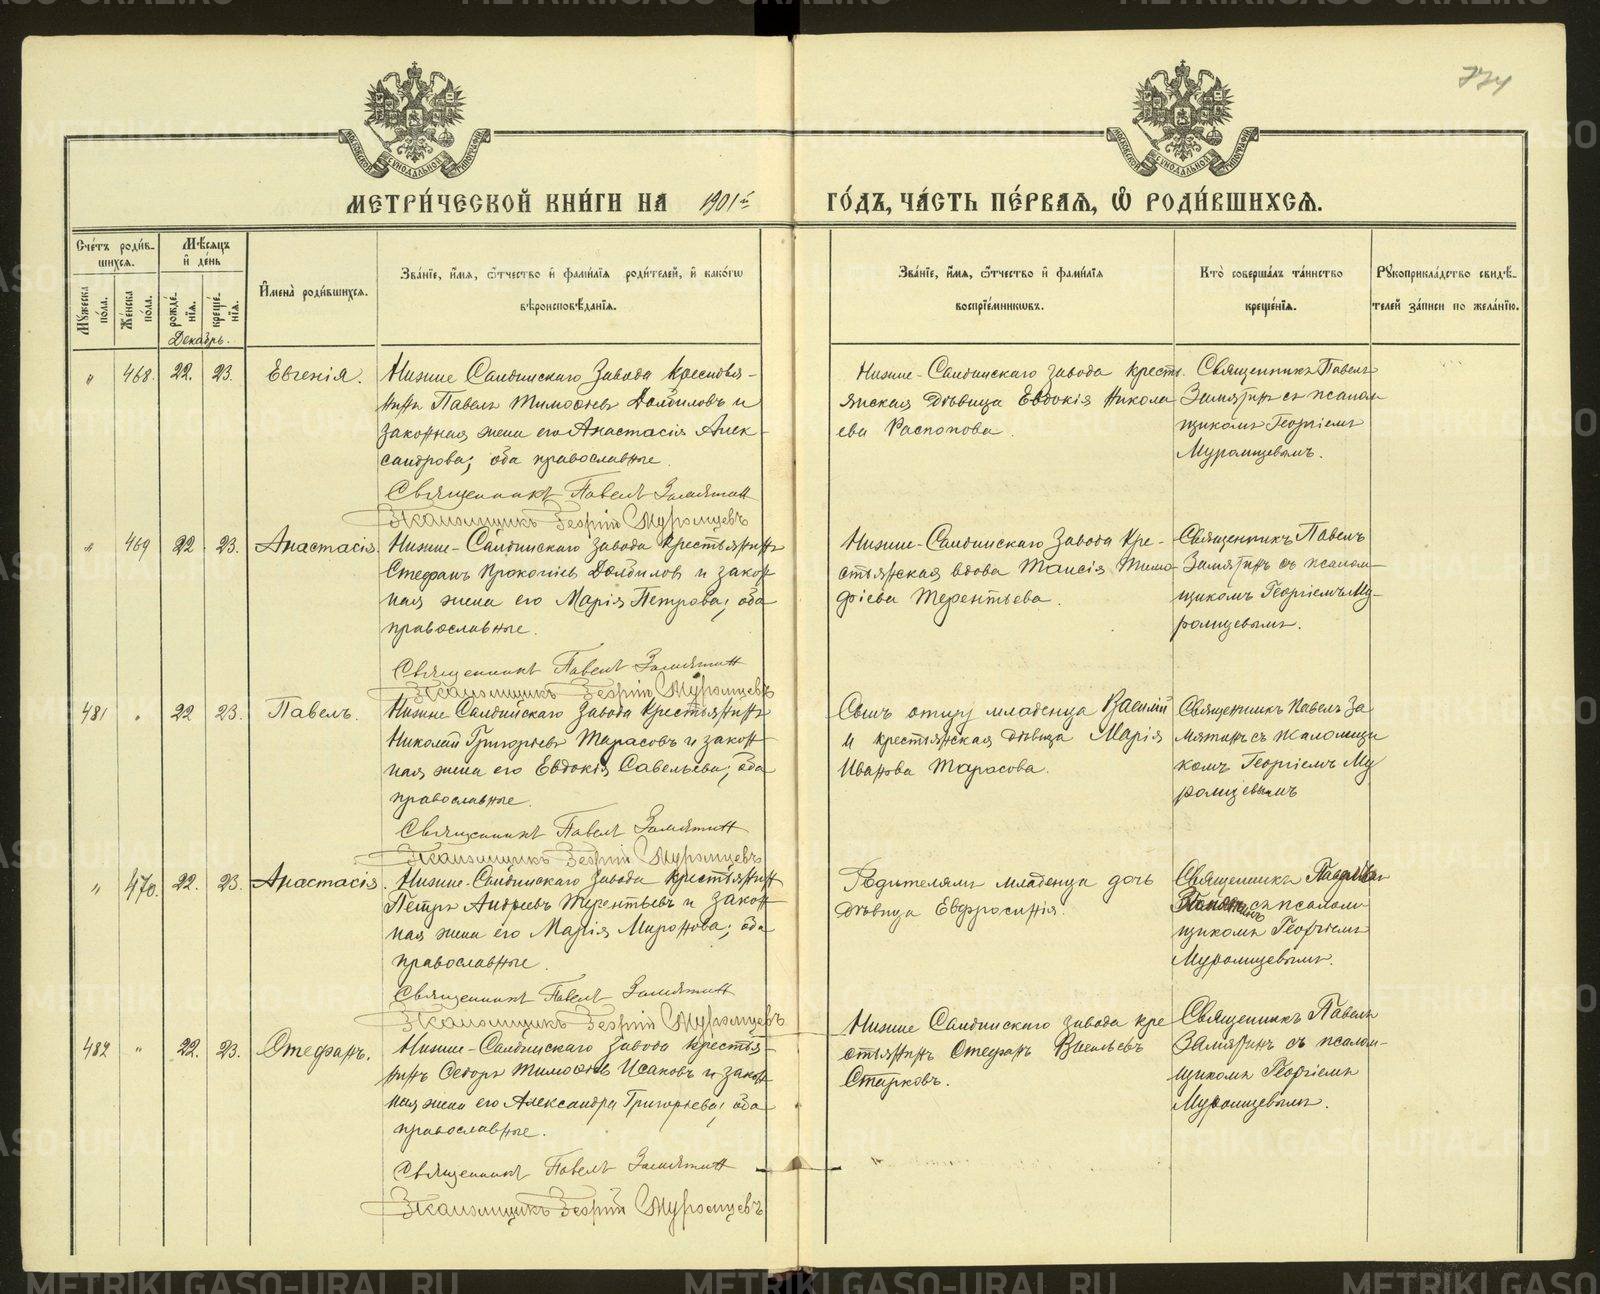 774
МЕТРИ́ЧЕСКОЙ КНИ́ГИ НА 1901й ГО́ДЪ, ЧА́СТЬ ПЕ́РВАЯ, Ѽ РОДИ́ВШИХСЯ.
Сче́тъ роди́в-
шихся.
Мѣсяцъ
и де́нь
Мꙋжеска по́ла.
Же́нска по́ла.
рожде́-
нїя.
креще́-
нїя.
Имена̀ роди́вшихся.
Зва́нїе, и́мя, ѻ́тчество и фами́лїя роди́телей, и како́гѡ
вѣроисповѣ́данїя.
Зва́нїе, и́мя, ѻ́тчество и фами́лїя
воспрїе́мникѡвъ.
Кто̀ соверша́лъ та́инство
креще́нїя.
Рꙋкоприкла́дство свидѣ́-
телей за́писи по жела́нїю.
Декабрь.
" 468. 22. 23. Евгенія.
Нижне Салдинскаго Завода крестья-
нинъ Павелъ Тимоѳѣевъ Долбиловъ и
законная жена его Анастасія Алек-
сандрова; оба православные.
Священникъ Павелъ Замятин
Псаломщикъ Георгій Муромцевъ
Нижне-Салдинскаго завода кресть-
янская дѣвица Евдокія Никола
ева Распопова.
Священникъ Павелъ
Замятинъ съ псалом
щикомъ Георгіемъ
Муромцевымъ.
" 469 22. 23. Анастасія.
Нижне-Салдинскаго Завода крестьянинъ
Стефанъ Прокопіевъ Долбилов и закон
ная жена его Марія Петрова; оба
православные.
Священникъ Павелъ Замятин
Псаломщикъ Георгій Муромцевъ
Нижне-Салдинскаго Завода кре-
стьянская вдова Таисія Тимо
фіева Терентьева.
Священникъ Павелъ
Замятинъ съ псалом-
щикомъ Георгіемъ Му-
ромцевымъ.
481 " 22 23. Павелъ.
Нижне Салдинскаго Завода крестьянинъ
Николай Григорьевъ Тарасовъ и закон
ная жена его Евдокія Савельева; оба
православные.
Священникъ Павелъ Замятин
Псаломщикъ Георгій Муромцевъ
Сынъ отцу младенца Василій
и крестьянская дѣвица Марія
Иванова Тарасова.
Священникъ Павелъ За
мятинъ съ псаломщи
комъ Георгіемъ Му
ромцевымъ
" 470. 22. 23. Анастасія.
Нижне-Салдинскаго Завода крестьянин
Петръ Андреевъ Терентьевъ и закон
ная жена его Марія Миронова; оба
православные.
Священникъ Павелъ Замятин
Псаломщикъ Георгій Муромцевъ
Родителямъ младенца дочь
дѣвица Евфросинія.
Священникъ Павелъ
съ псалом
щикомъ Георгіемъ
Муромцевымъ.
482 " 22. 23. Стефанъ.
Нижне-Салдинскаго Завода крестья-
нинъ Ѳедоръ Тимоѳѣевъ Исаковъ и закон
ная жена его Александра Григорьева; оба
православные.
Священникъ Павелъ Замятин
Псаломщикъ Георгій Муромцевъ
Нижне Салдинскаго завода кре
стьянинъ Стефанъ Васильевъ
Старковъ.
Священникъ Павелъ
Замятинъ съ псалом-
щикомъ Георгіемъ
Муромцевымъ.
METRIKI.GASO-URAL.RU